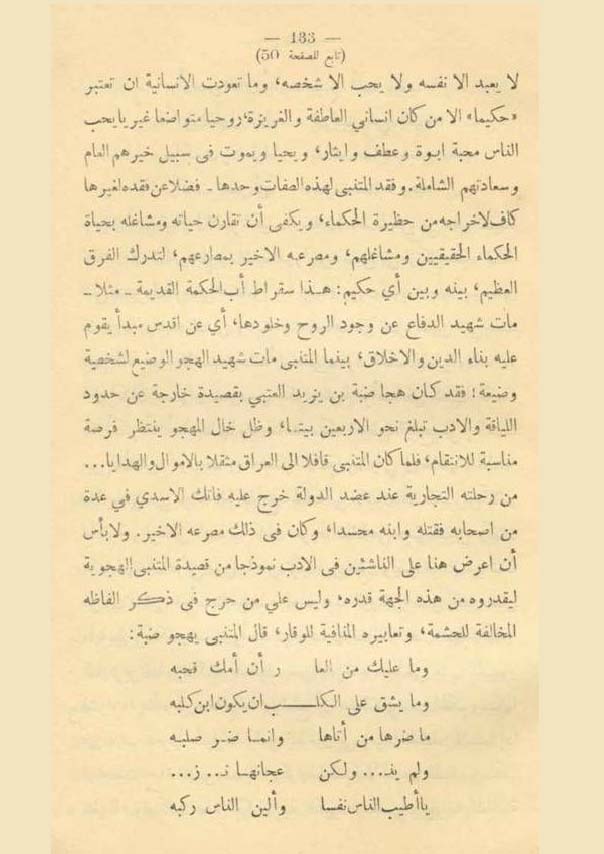 — 133 —
(تابع للصفحة 50)
لا يعبد الا نفسه ولا يحب الا شخصه، وما تعودت الانسانية ان تعتبر
«حكيما» الا من كان انساني العاطفة والغريزة، روحيا متواضعا غيريا يحب
الناس محبة ابوة وعطف وايثار، ويحيا ويموت فى سبيل خيرهم العام
وسعادتهم الشاملة. وفقد المتنبي لهذه الصفات وحدها ـ فضلا عن فقده لغيرها
كاف لاخراجه من حظيرة الحكماء، ويكفى أن تقارن حياته ومشاغله بحياة
الحكماء الحقيقيين ومشاغلهم، ومصرعه الاخير بمصارعهم، لتدرك الفرق
العظيم، بينه وبين أي حكيم: هـذا سقراط أب الحكمة القديمة ـ مثلا ـ
مات شهيد الدفاع عن وجود الروح وخلودها، أي عن اقدس مبدأ يقوم
عليه بناء الدين والاخلاق، بينما المتنبى مات شهيد الهجو الوضيع لشخصية
وضيعة! فقد كان هجا ضبة بن يزيد العتبي بقصيدة خارجة عن حدود
اللياقة والادب تبلغ نحو الاربعين بيتـا، وظل خال المهجو ينتظر فرصة
مناسبة للانتقام، فلما كان المتنبى قافلا الى العراق مثقلا بالاموال والهدايا...
من رحلته التجارية عند عضد الدولة خرج عليه فاتك الاسدي في عدة
من اصحابه فقتله وابنه محسدا، وكان فى ذلك مصرعه الاخير. ولا بأس
أن اعرض هنا على الناشئين فى الادب نموذجا من قصيدة المتنبى الهجوية
ليقدروه من هذه الجهة قدره، وليس علي من حرج فى ذكر الفاظه
المخالفة للحشمة، وتعابيره المنافية للوقار، قال المتنبى يهجو ضبة:
وما عليك من العا ر أن أمك قحبه
وما يشق على الكلـــب ان يكون ابن كلبه
ما ضرها من أتاها وانمـا ضـر صلبـه
ولم يذ... ولكن عجانهـا نـ.. ز...
يا أطيب الناس نفسا وألين الناس ركبه